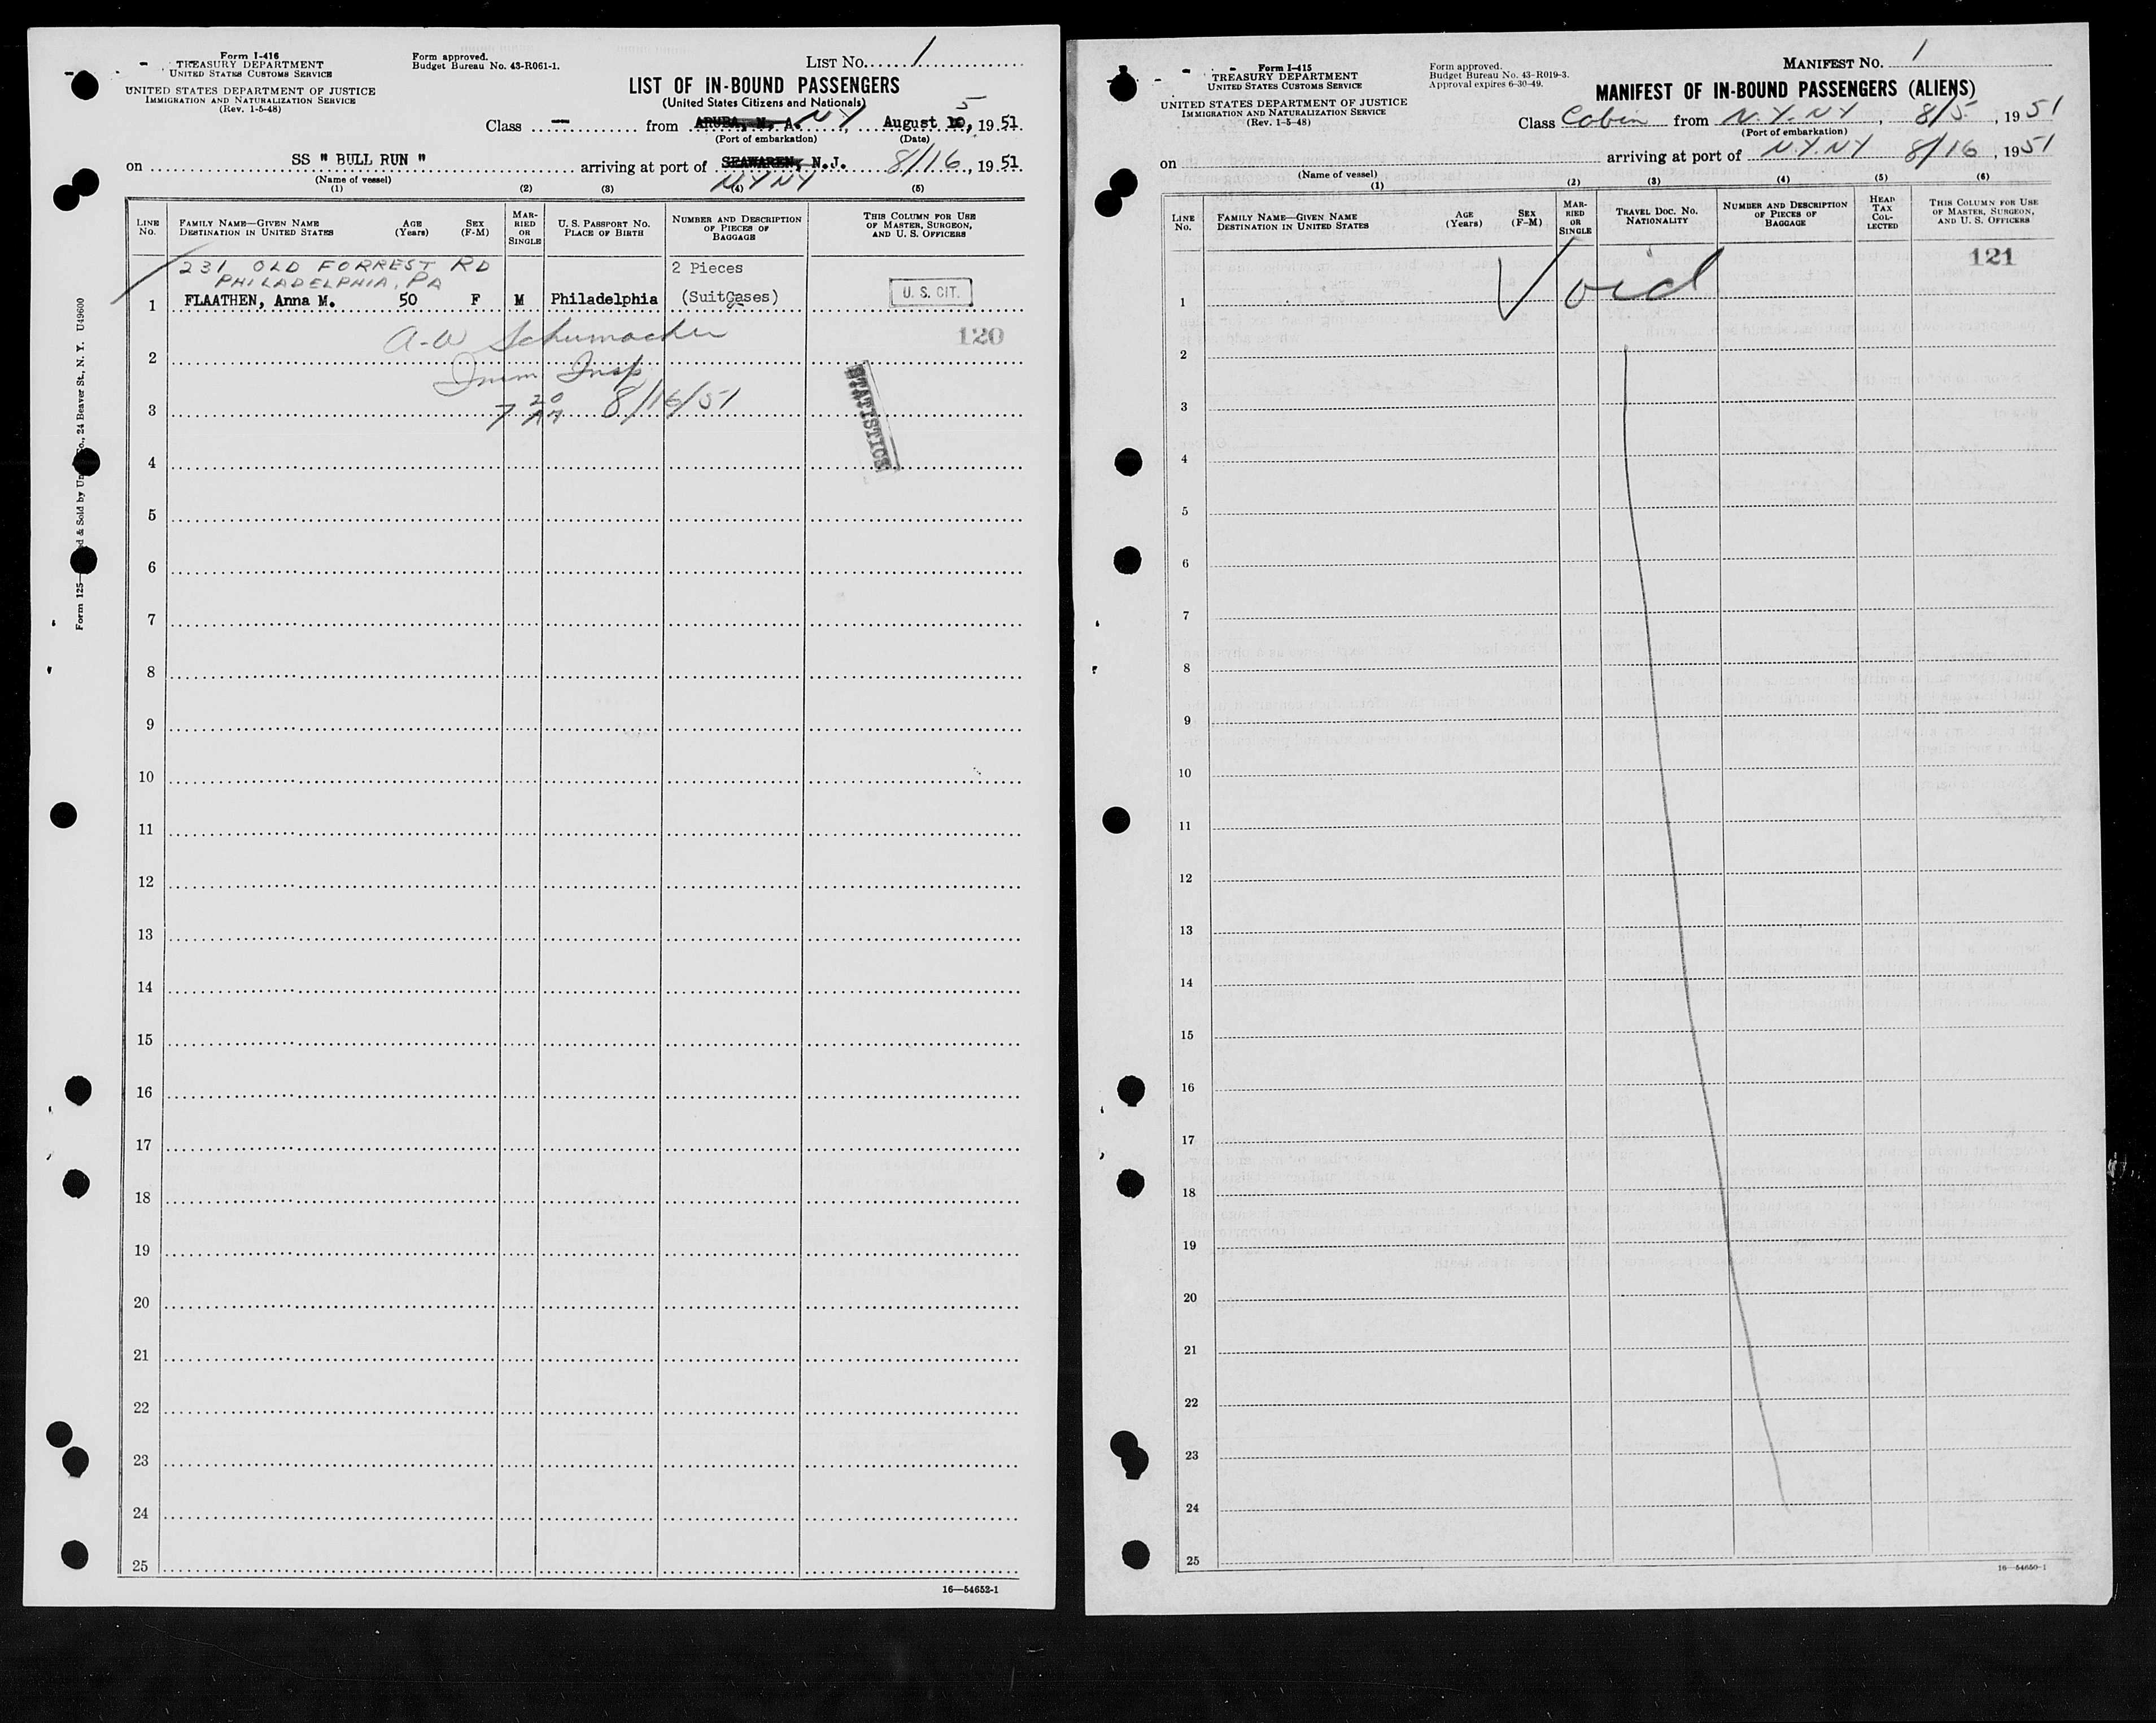 Form I-416
TREASURY DEPARTMENT
UNITED STATES CUSTOMS SERVICE
UNITED STATES DEPARTMENT OF JUSTICE
IMMIGRATION AND NATURALIZATION SERVICE
(Rev. 1-5-48)
Form approved.
Budget Bureau No. 43-R061-1.
LIST No. 1
LIST OF IN-BOUND PASSENGERS
(United States Citizens and Nationals)
Class — from ARUBA, N. A. NY, August 10, 5, 1951
(Port of embarkation) (Date)
on SS " BULL RUN " arriving at port of SEAWAREN, N.J. 8/16, 1951
NY NY
(Name of vessel)
(1) (2) (3) (4) (5)
LINE No.
FAMILY NAME—GIVEN NAME
DESTINATION IN UNITED STATES
AGE (Years)
SEX (F-M)
MARRIED OR SINGLE
U. S. PASSPORT NO.
PLACE OF BIRTH
NUMBER AND DESCRIPTION OF PIECES OF BAGGAGE
THIS COLUMN FOR USE OF MASTER, SURGEON, AND U. S. OFFICERS
231 OLD FORREST RD 2 Pieces
PHILADELPHIA, PA
1 FLAATHEN, Anna M. 50 F M Philadelphia (SuitCases) U. S. CIT.
A-W Schumacher 120
2
Imm Insp
3 7 20 AM 8/16/51
STATISTICS
4
5
6
7
8
9
10
11
12
13
14
15
16
17
18
19
20
21
22
23
24
25
16—54652-1
Form 125— d & Sold by Un Co., 24 Beaver St., N. Y. U496600
Form I-415
TREASURY DEPARTMENT
UNITED STATES CUSTOMS SERVICE
UNITED STATES DEPARTMENT OF JUSTICE
IMMIGRATION AND NATURALIZATION SERVICE
(Rev. 1-5-48)
Form approved.
Budget Bureau No. 43-R019-3.
Approval expires 6-30-49.
MANIFEST No. 1
MANIFEST OF IN-BOUND PASSENGERS (ALIENS)
Class Cabin from N.Y. NY, 8/5, 1951
(Port of embarkation)
on arriving at port of N.Y. NY 8/16, 1951
(Name of vessel)
(1) (2) (3) (4) (5) (6)
LINE No.
FAMILY NAME—GIVEN NAME
DESTINATION IN UNITED STATES
AGE (Years)
SEX (F-M)
MARRIED OR SINGLE
TRAVEL DOC. NO.
NATIONALITY
NUMBER AND DESCRIPTION OF PIECES OF BAGGAGE
HEAD TAX COLLECTED
THIS COLUMN FOR USE OF MASTER, SURGEON, AND U. S. OFFICERS
121
1 Void
2
3
4
5
6
7
8
9
10
11
12
13
14
15
16
17
18
19
20
21
22
23
24
25
16—54650-1